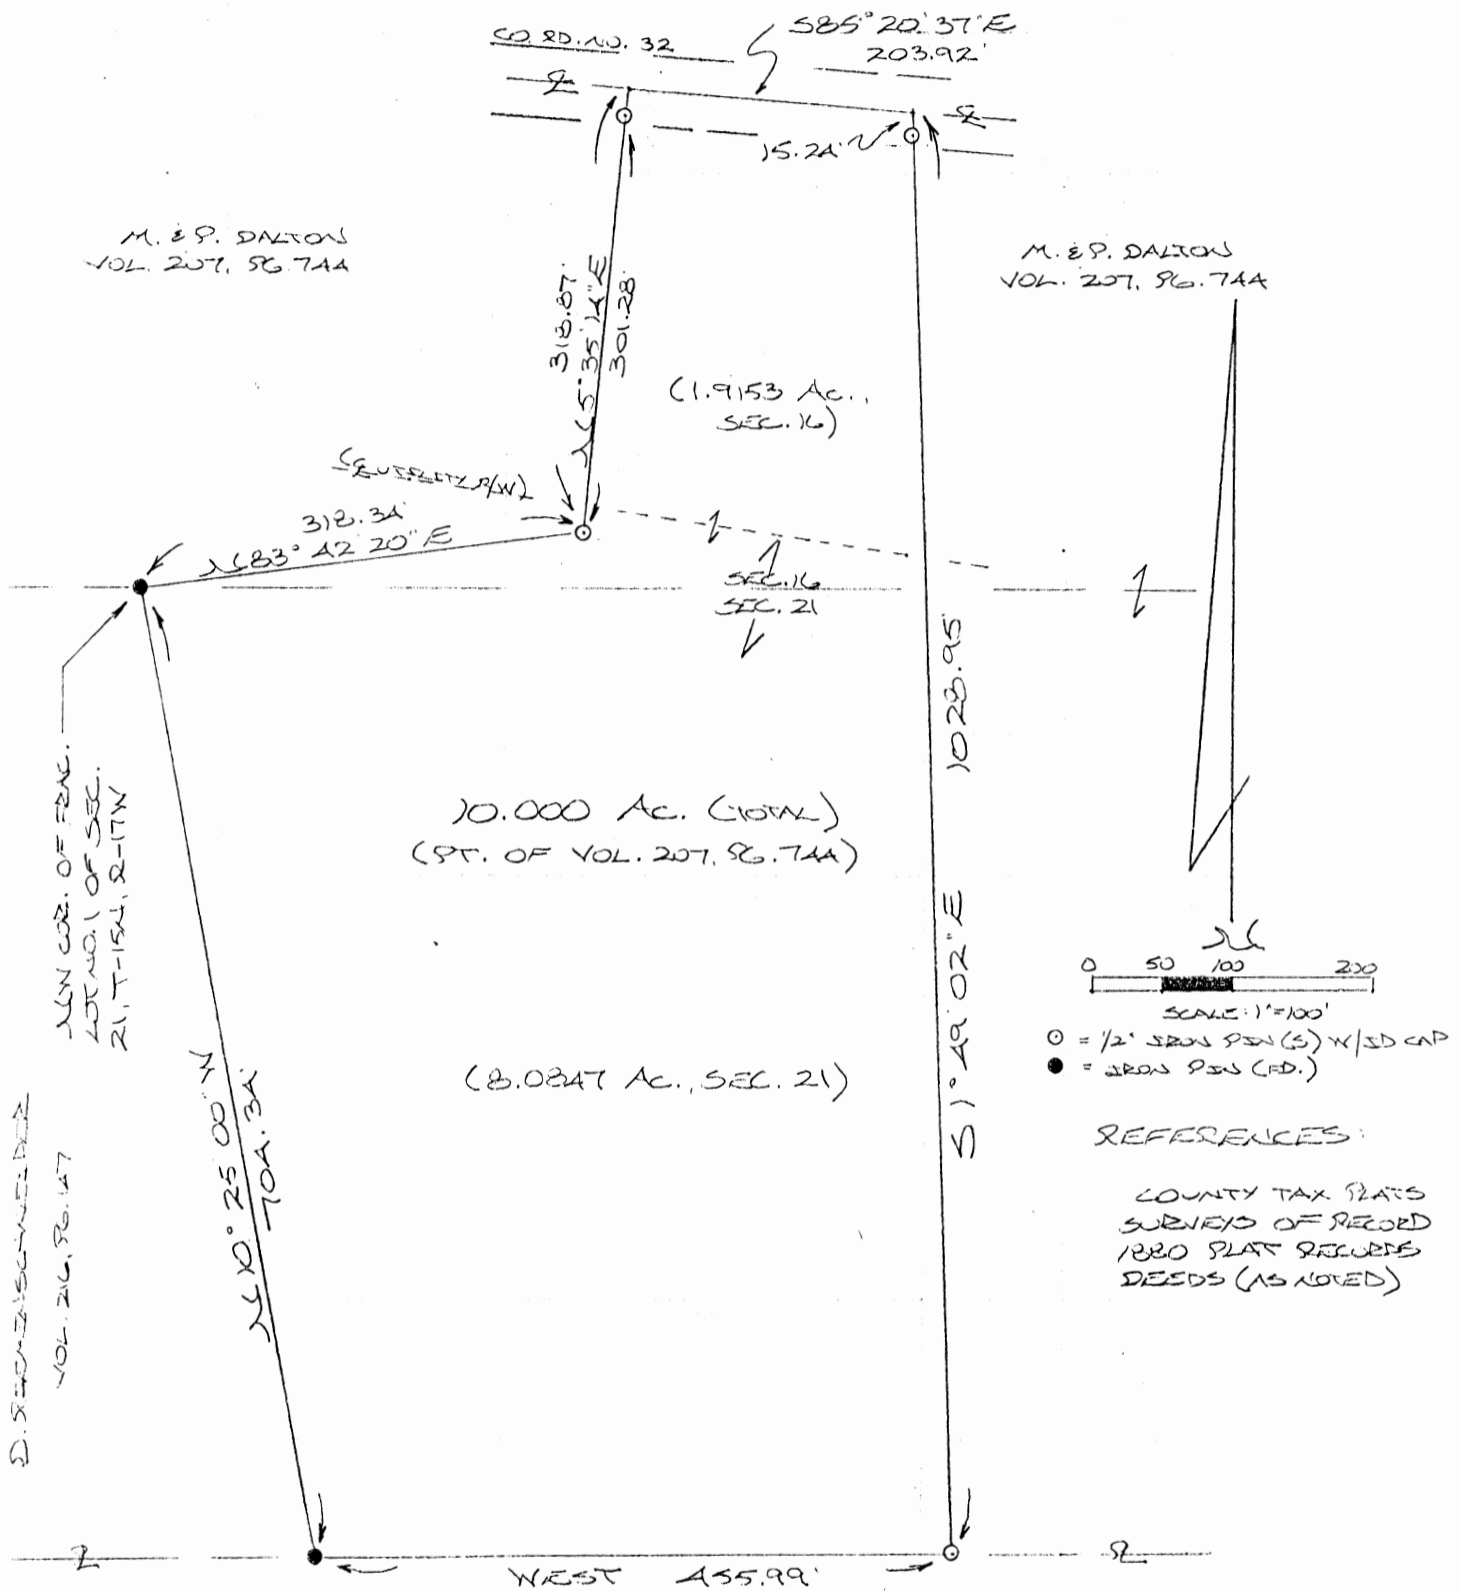 CO. RD. NO. 32
S85° 20' 37" E
203.92'
15.24'
M. & P. DALTON
VOL. 207, PG. 744
M. & P. DALTON
VOL. 207, PG. 744
318.87'
N 5° 35' 14" E
301.28'
(1.9153 AC.,
SEC. 16)
(℄ UTILITY R/W)
318.34'
N 83° 42' 20" E
SEC. 16
SEC. 21
1028.95'
S 1° 49' 02" E
10.000 AC. (TOTAL)
(PT. OF VOL. 207, PG. 744)
NW COR. OF FRAC.
LOT NO. 1 OF SEC.
21, T-15N, R-17W
N 10° 25' 00" W
704.34'
(8.0847 AC., SEC. 21)
D.
VOL. 216, PG. 147
N
0 50 100 200
SCALE: 1"=100'
= 1/2" IRON PIN (S) W/ID CAP
= IRON PIN (FD.)
REFERENCES:
COUNTY TAX PLATS
SURVEYS OF RECORD
1880 PLAT RECORDS
DEEDS (AS NOTED)
WEST 455.99'